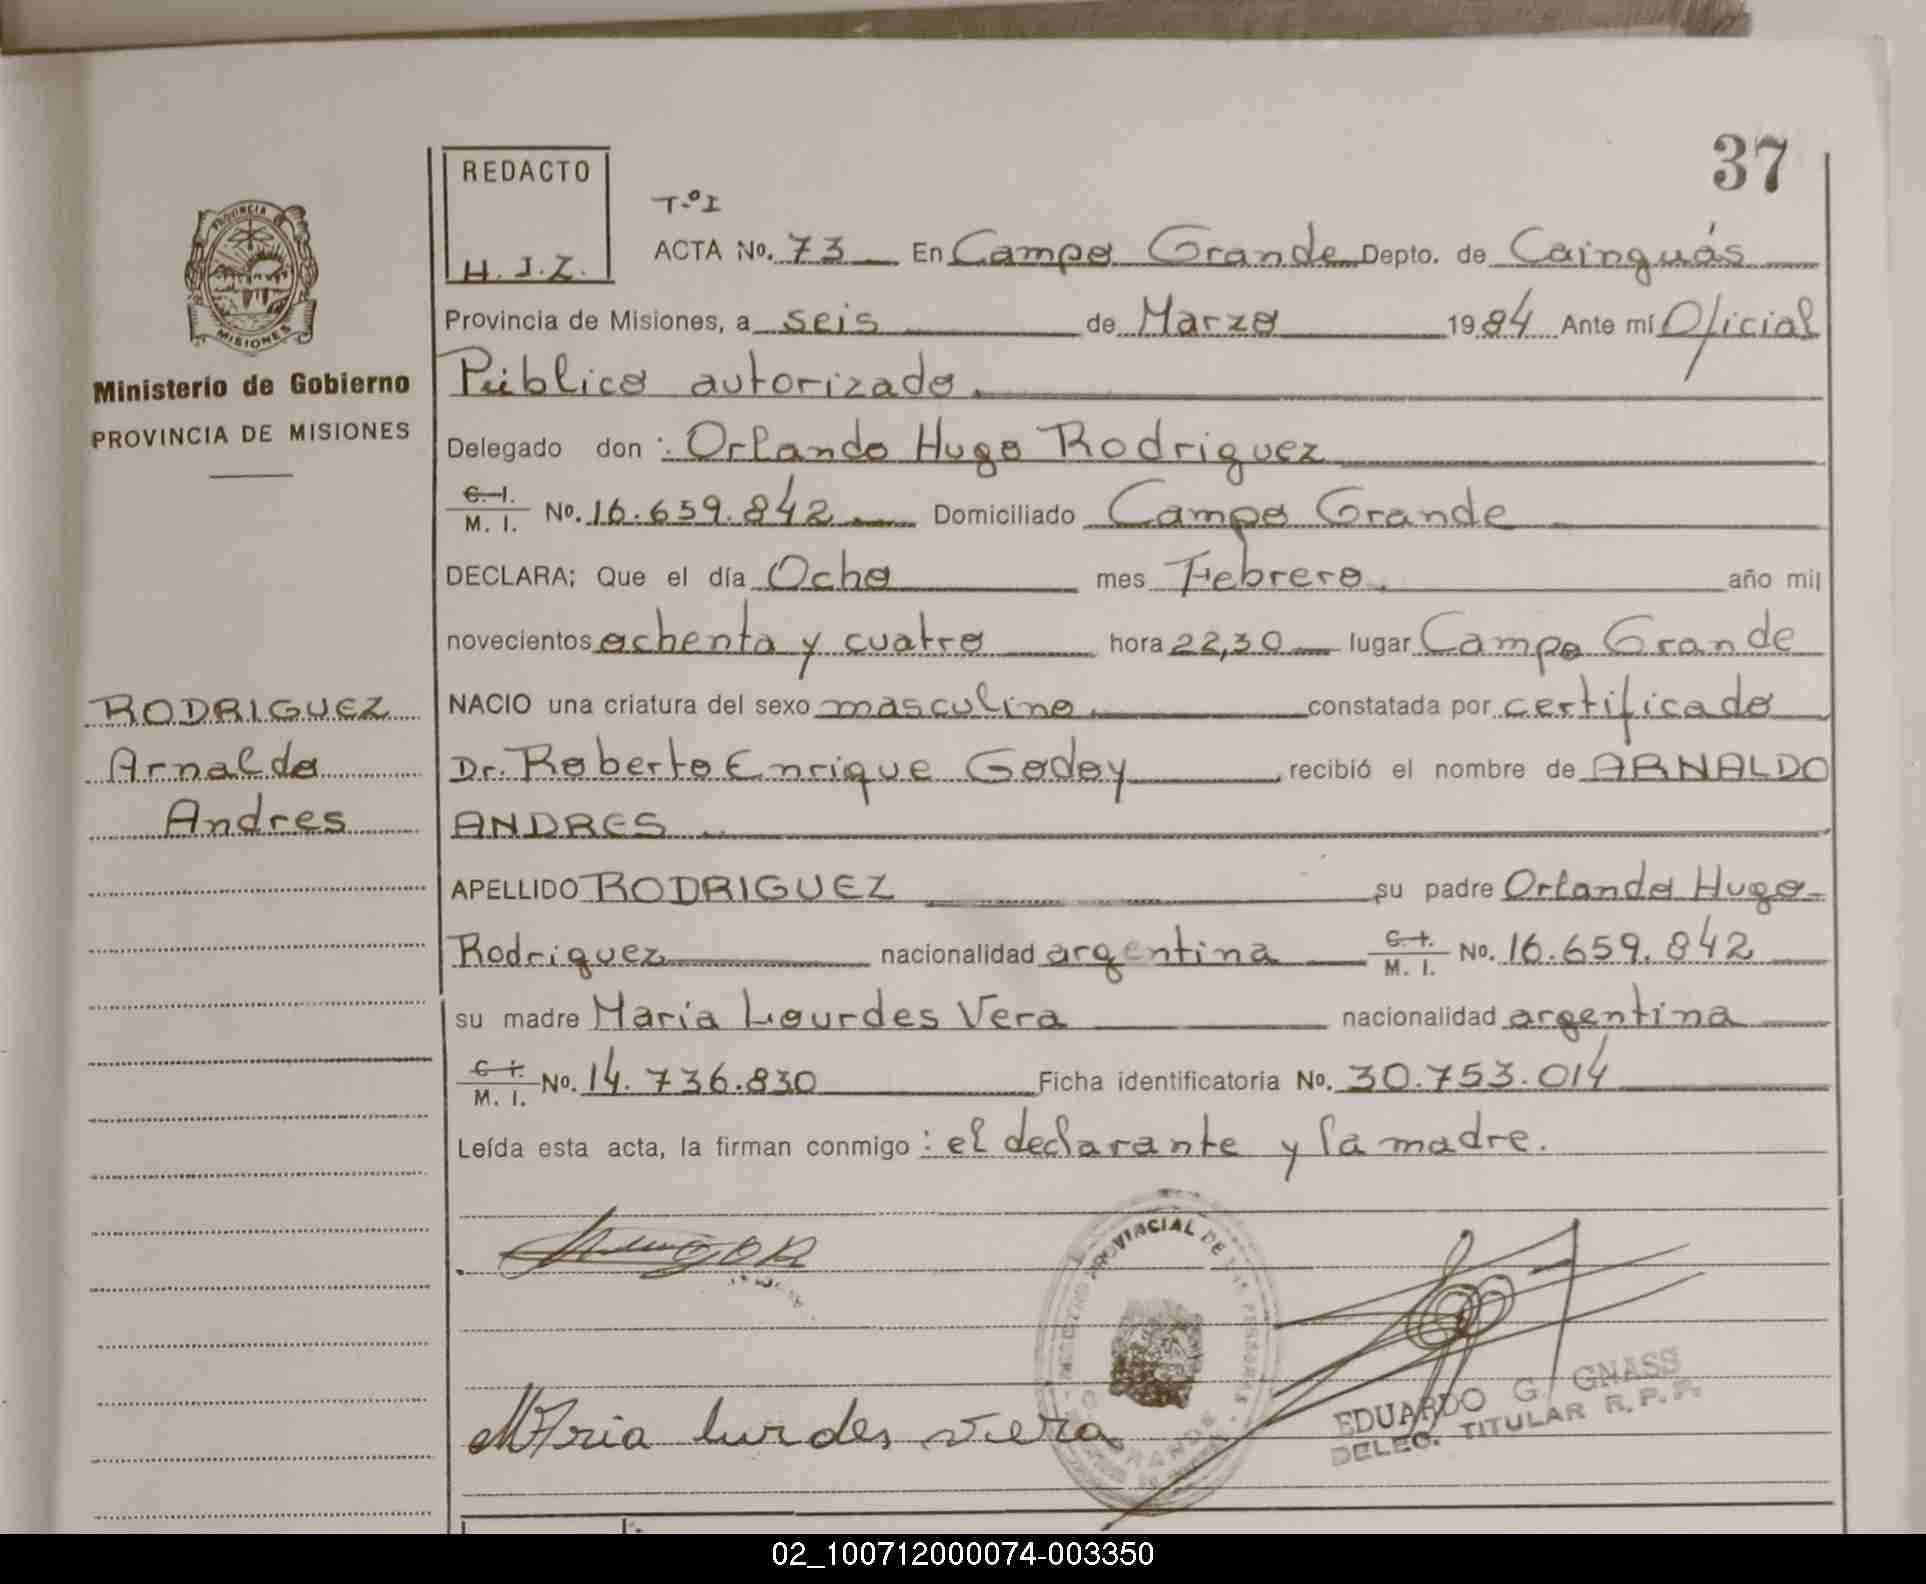 37
REDACTO
H.J.Z.
T.º I
ACTA No. 73 En Campo Grande Depto. de Cainguás
Provincia de Misiones, a seis de Marzo 1984 Ante mí Oficial
Público autorizado.
Delegado don: Orlando Hugo Rodriguez
C.I. M.I. No. 16.659.842 Domiciliado Campo Grande
DECLARA; Que el día Ocho mes Febrero. año mil
novecientos ochenta y cuatro hora 22,30 lugar Campo Grande
NACIO una criatura del sexo masculino. constatada por certificado
Dr. Roberto Enrique Godoy recibió el nombre de ARNALDO
ANDRES.
APELLIDO RODRIGUEZ su padre Orlando Hugo
Rodriguez nacionalidad argentina C.I. M.I. No. 16.659.842
su madre Maria Lourdes Vera nacionalidad argentina
C.I. M.I. No. 14.736.830 Ficha identificatoria No. 30.753.014
Leída esta acta, la firman conmigo: el declarante y la madre.
PROVINCIA
MISIONES
Ministerio de Gobierno
PROVINCIA DE MISIONES
RODRIGUEZ
Arnaldo
Andres
PROVINCIAL DE
Maria lurdes viera
EDUARDO G. GNASS
DELEG. TITULAR R.P.P.
02_100712000074-003350